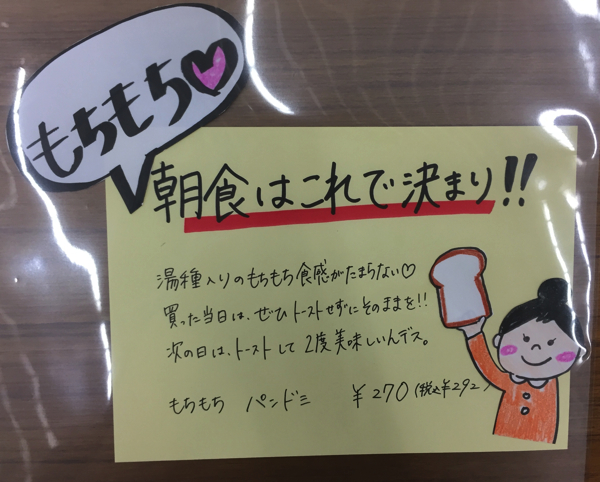 もちもち♡
朝食はこれで決まり!!
湯種入りのもちもち食感がたまらない♡
買った当日は、ぜひトーストせずにそのままを!!
次の日は、トーストして2度美味しいんデス。
もちもち パンドミ ¥270(税込¥292)